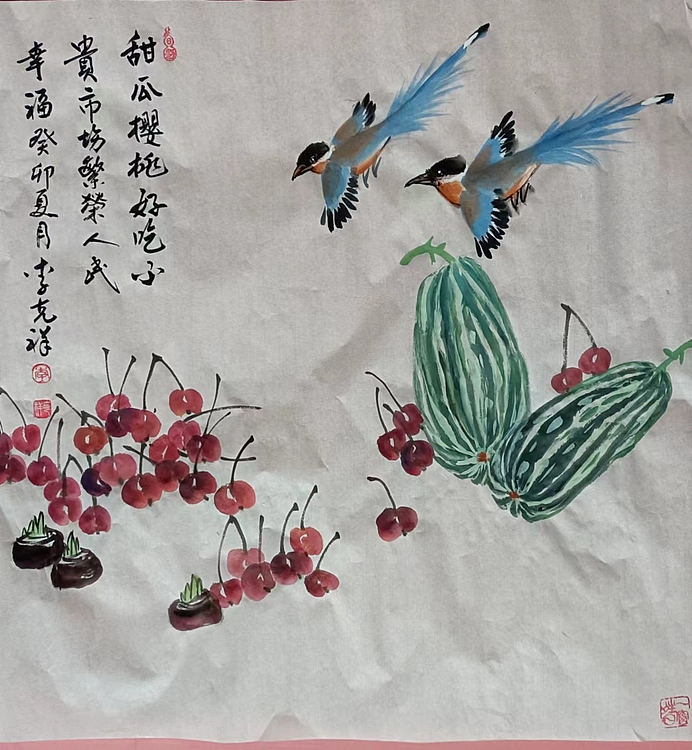 甜瓜樱桃好吃不
貴市场繁荣人民
幸福癸卯夏月李克祥